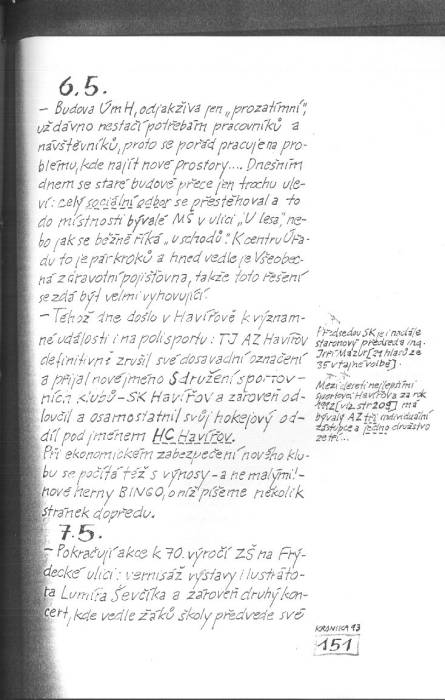 6.5.
– Budova ÚmH, odjakživa jen „prozatímní",
už dávno nestačí potřebám pracovníků a
návštěvníků, proto se pořád pracuje na pro-
blému, kde najít nové prostory.... Dnešním
dnem se staré budově přece jen trochu ule-
ví: celý sociální odbor se přestěhoval a to
do místností bývalé MŠ v ulici „U lesa", ne-
bo jak se běžně říká „u schodů". K centru Úřa-
du to je pár kroků a hned vedle je Všeobec-
ná zdravotní pojišťovna, takže toto řešení
se zdá být velmi vyhovující.
– Téhož dne došlo v Havířově k význam-
né události i na poli sportu: TJ AZ Havířov
definitivně zrušil své dosavadní označení
a přijal nové jméno Sdružení sportov-
ních klubů – SK Havířov a zároveň od-
loučil a osamostatnil svůj hokejový od-
díl pod jménem HC Havířov.
Při ekonomickém zabezpečení nového klu-
bu se počítá též s výnosy – a ne malými! –
nové herny BINGO, o níž píšeme několik
stránek dopředu.
Předsedou SK je i nadále
staronový předseda ing.
Jiří Mazur [21 hlasů ze
35 v tajné volbě].
Mezi deseti nejlepšími
sportovci Havířova za rok
1992 [viz str 209] má
bývalý AZ tři individuální
zástupce a jedno družstvo
7.5.
– Pokračují akce k 70. výročí ZŠ na Frý-
decké ulici: vernisáž výstavy ilustráto-
ra Lumíra Ševčíka a zároveň druhý kon-
cert, kde vedle žáků školy předvede své
KRONIKA 93
151